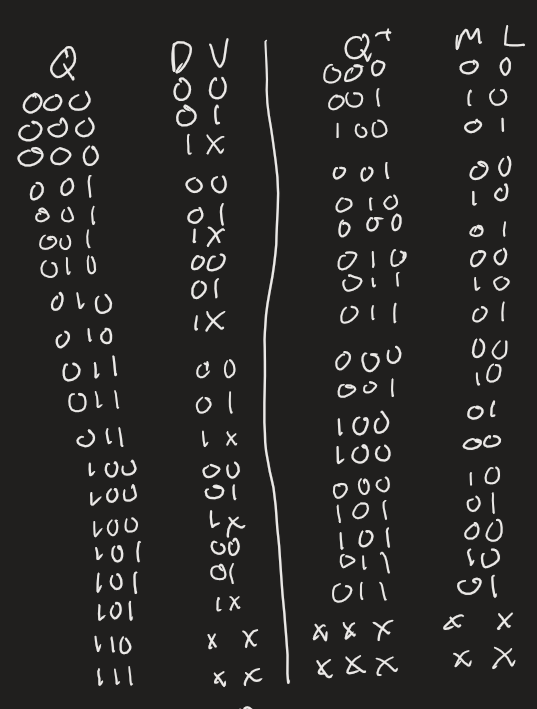 Q D V Q+ M L
000 00 000 00
000 01 001 10
000 1X 100 01
001 00 001 00
001 01 010 10
001 1X 000 01
010 00 010 00
010 01 011 10
010 1X 011 01
011 00 000 00
011 01 001 10
011 1X 100 01
100 00 100 00
100 01 000 10
100 1X 101 01
101 00 101 00
101 01 011 10
101 1X 011 01
110 X X X X X X X
111 X X X X X X X